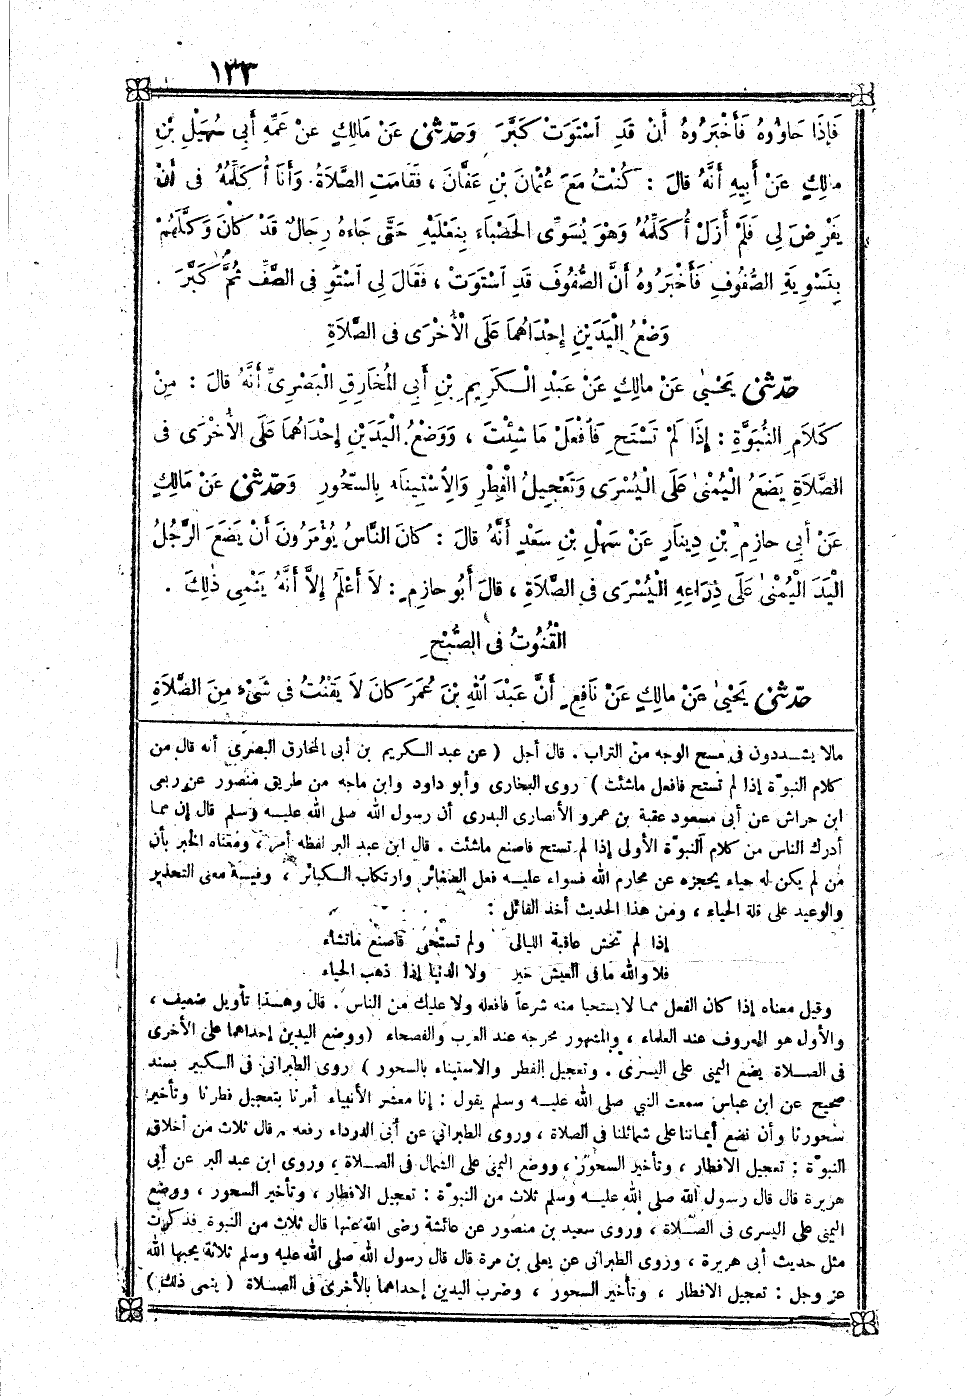 ١٣٣
فَإِذَا جَاؤُوهُ فَأَخْبَرُوهُ أَنْ قَدِ اسْتَوَتْ كَبَّرَ وَحَدَّثَنِي عَنْ مَالِكٍ عَنْ عَمِّهِ أَبِي سُهَيْلِ بْنِ
مالِكٍ عَنْ أَبِيهِ أَنَّهُ قَالَ : كُنْتُ مَعَ عُثْمَانَ بْنِ عَفَّانَ ، فَقَامَتِ الصَّلَاةُ وَأَنَا أُكَلِّمُهُ فى أَنْ
يَفْرِضَ لِي فَلَمْ أَزَلْ أُكَلِّمُهُ وَهُوَ يُسَوِّى الْحَصْبَاءَ بِنَعْلَيْهِ حَتَّى جَاءَهُ رِجَالٌ قَدْ كَانَ وَكَّلَهُمْ
بِتَسْوِيَةِ الصُّفُوفِ فَأَخْبَرُوهُ أَنَّ الصُّفُوفَ قَدِ اسْتَوَتْ ، فَقَالَ لِي اسْتَوِ فى الصَّفِّ ثُمَّ كَبَّرَ .
وَضْعُ الْيَدَيْنِ إِحْدَاهُمَا عَلَى الْأُخْرَى فى الصَّلَاةِ
حَدَّثَنِي يَحْيَىٰ عَنْ مالِكٍ عَنْ عَبْدِ الْكَرِيمِ بْنِ أَبِي الْمُخَارِقِ الْبَصْرِيِّ أَنَّهُ قَالَ : مِنْ
كَلَامِ النُّبُوَّةِ : إِذَا لَمْ تَسْتَحِ فَافْعَلْ مَا شِئْتَ ، وَوَضْعُ الْيَدَيْنِ إِحْدَاهُمَا عَلَى الْأُخْرَى فى
الصَّلَاةِ يَضَعُ الْيُمْنَىٰ عَلَى الْيُسْرَى وَتَعْجِيلُ الْفِطْرِ وَالِاسْتِينَاءُ بِالسَّحُورِ وَحَدَّثَنِي عَنْ مَالِكٍ
عَنْ أَبِي حازِمِ بْنِ دِينَارٍ عَنْ سَهْلِ بْنِ سَعْدٍ أَنَّهُ قَالَ : كَانَ النَّاسُ يُؤْمَرُونَ أَنْ يَضَعَ الرَّجُلُ
الْيَدَ الْيُمْنَىٰ عَلَى ذِرَاعِهِ الْيُسْرَى فى الصَّلَاةِ ، قَالَ أَبُو حازِمٍ : لَا أَعْلَمُ إِلَّا أَنَّهُ يَنْمِى ذٰلِكَ .
الْقُنُوتُ فى الصُّبْحِ
حَدَّثَنِي يَحْيَىٰ عَنْ مالِكٍ عَنْ نَافِعٍ أَنَّ عَبْدَ اللهِ بْنَ عُمَرَ كَانَ لَا يَقْنُتُ فى شَيْءٍ مِنَ الصَّلَاةِ
مالا يشددون فى مسح الوجه من التراب . قال أجل ( عن عبد الكريم بن أبى المخارق البصرى أنه قال من
كلام النبوّة إذا لم تستح فافعل ماشئت ) روى البخارى وأبو داود وابن ماجه من طريق منصور عن ربعى
ابن حراش عن أبى مسعود عقبة بن عمرو الأنصارى البدرى أن رسول الله صلى الله عليه وسلم قال إن مما
أدرك الناس من كلام النبوّة الأولى إذا لم تستح فاصنع ماشئت . قال ابن عبد البر لفظه أمر ، ومعناه الخبر بأن
من لم يكن له حياء يحجزه عن محارم الله فسواء عليه فعل الصغائر وارتكاب الكبائر ، وفيه معنى التحذير
والوعيد على قلة الحياء ، ومن هذا الحديث أخذ القائل :
إذا لم تخش عاقبة الليالى ولم تستحى فاصنع ماتشاء
فلا والله ما فى العيش خير ولا الدنيا إذا ذهب الحياء
وقيل معناه إذا كان الفعل مما لا يستحيا منه شرعاً فافعله ولا عليك من الناس . قال وهذا تأويل ضعيف ،
والأول هو المعروف عند العلماء ، والمشهور مخرجه عند العرب والفصحاء ( ووضع اليدين إحداهما على الأخرى
فى الصلاة يضع اليمنى على اليسرى . وتعجيل الفطر والاستيناء بالسحور ) روى الطبرانى فى الكبير بسند
صحيح عن ابن عباس سمعت النبي صلى الله عليه وسلم يقول : إنا معشر الأنبياء أمرنا بتعجيل فطرنا وتأخير
سحورنا وأن نضع أيماننا على شمائلنا فى الصلاة ، وروى الطبرانى عن أبى الدرداء رفعه . قال ثلاث من أخلاق
النبوّة : تعجيل الافطار ، وتأخير السحور ، ووضع اليمنى على الشمال فى الصلاة ، وروى ابن عبد البر عن أبى
هريرة قال قال رسول الله صلى الله عليه وسلم ثلاث من النبوّة : تعجيل الافطار ، وتأخير السحور ، ووضع
اليمنى على اليسرى فى الصلاة ، وروى سعيد بن منصور عن عائشة رضى الله عنها قال ثلاث من النبوة فذكرت
مثل حديث أبى هريرة ، وروى الطبرانى عن يعلى بن مرة قال قال رسول الله صلى الله عليه وسلم ثلاثة يحبها الله
عز وجل : تعجيل الافطار ، وتأخير السحور ، وضرب اليدين إحداهما بالأخرى فى الصلاة ( ينمى ذلك )